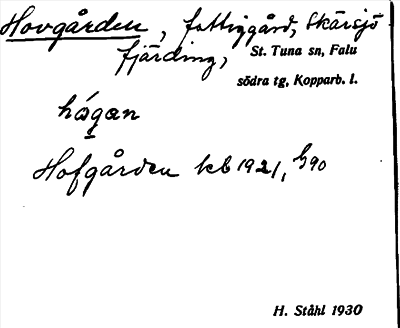 Hovgården, fattiggård, Skärsjö
fjärding, St. Tuna sn, Falu
södra tg, Kopparb. l.
hågan
Hofgården kb 1921, 590
H. Ståhl 1930